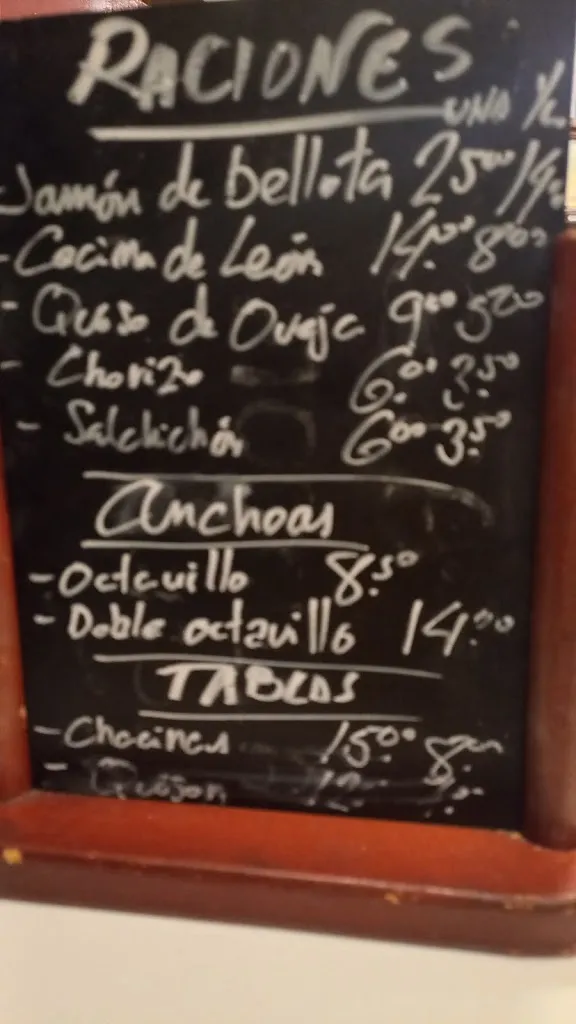 RACIONES
UNA 1/2
- Jamón de bellota 25⁰⁰ / 14.
- Cecina de León 14.⁰⁰ 8⁰⁰
- Queso de Oveja 9⁰⁰ 5⁰⁰
- Chorizo 6.⁰⁰ 3.⁵⁰
- Salchichón 6⁰⁰ 3.⁵⁰
Anchoas
- Octavillo 8.⁵⁰
- Doble octavillo 14.⁰⁰
TABLAS
- Chacinas 15⁰⁰ 8.⁰⁰